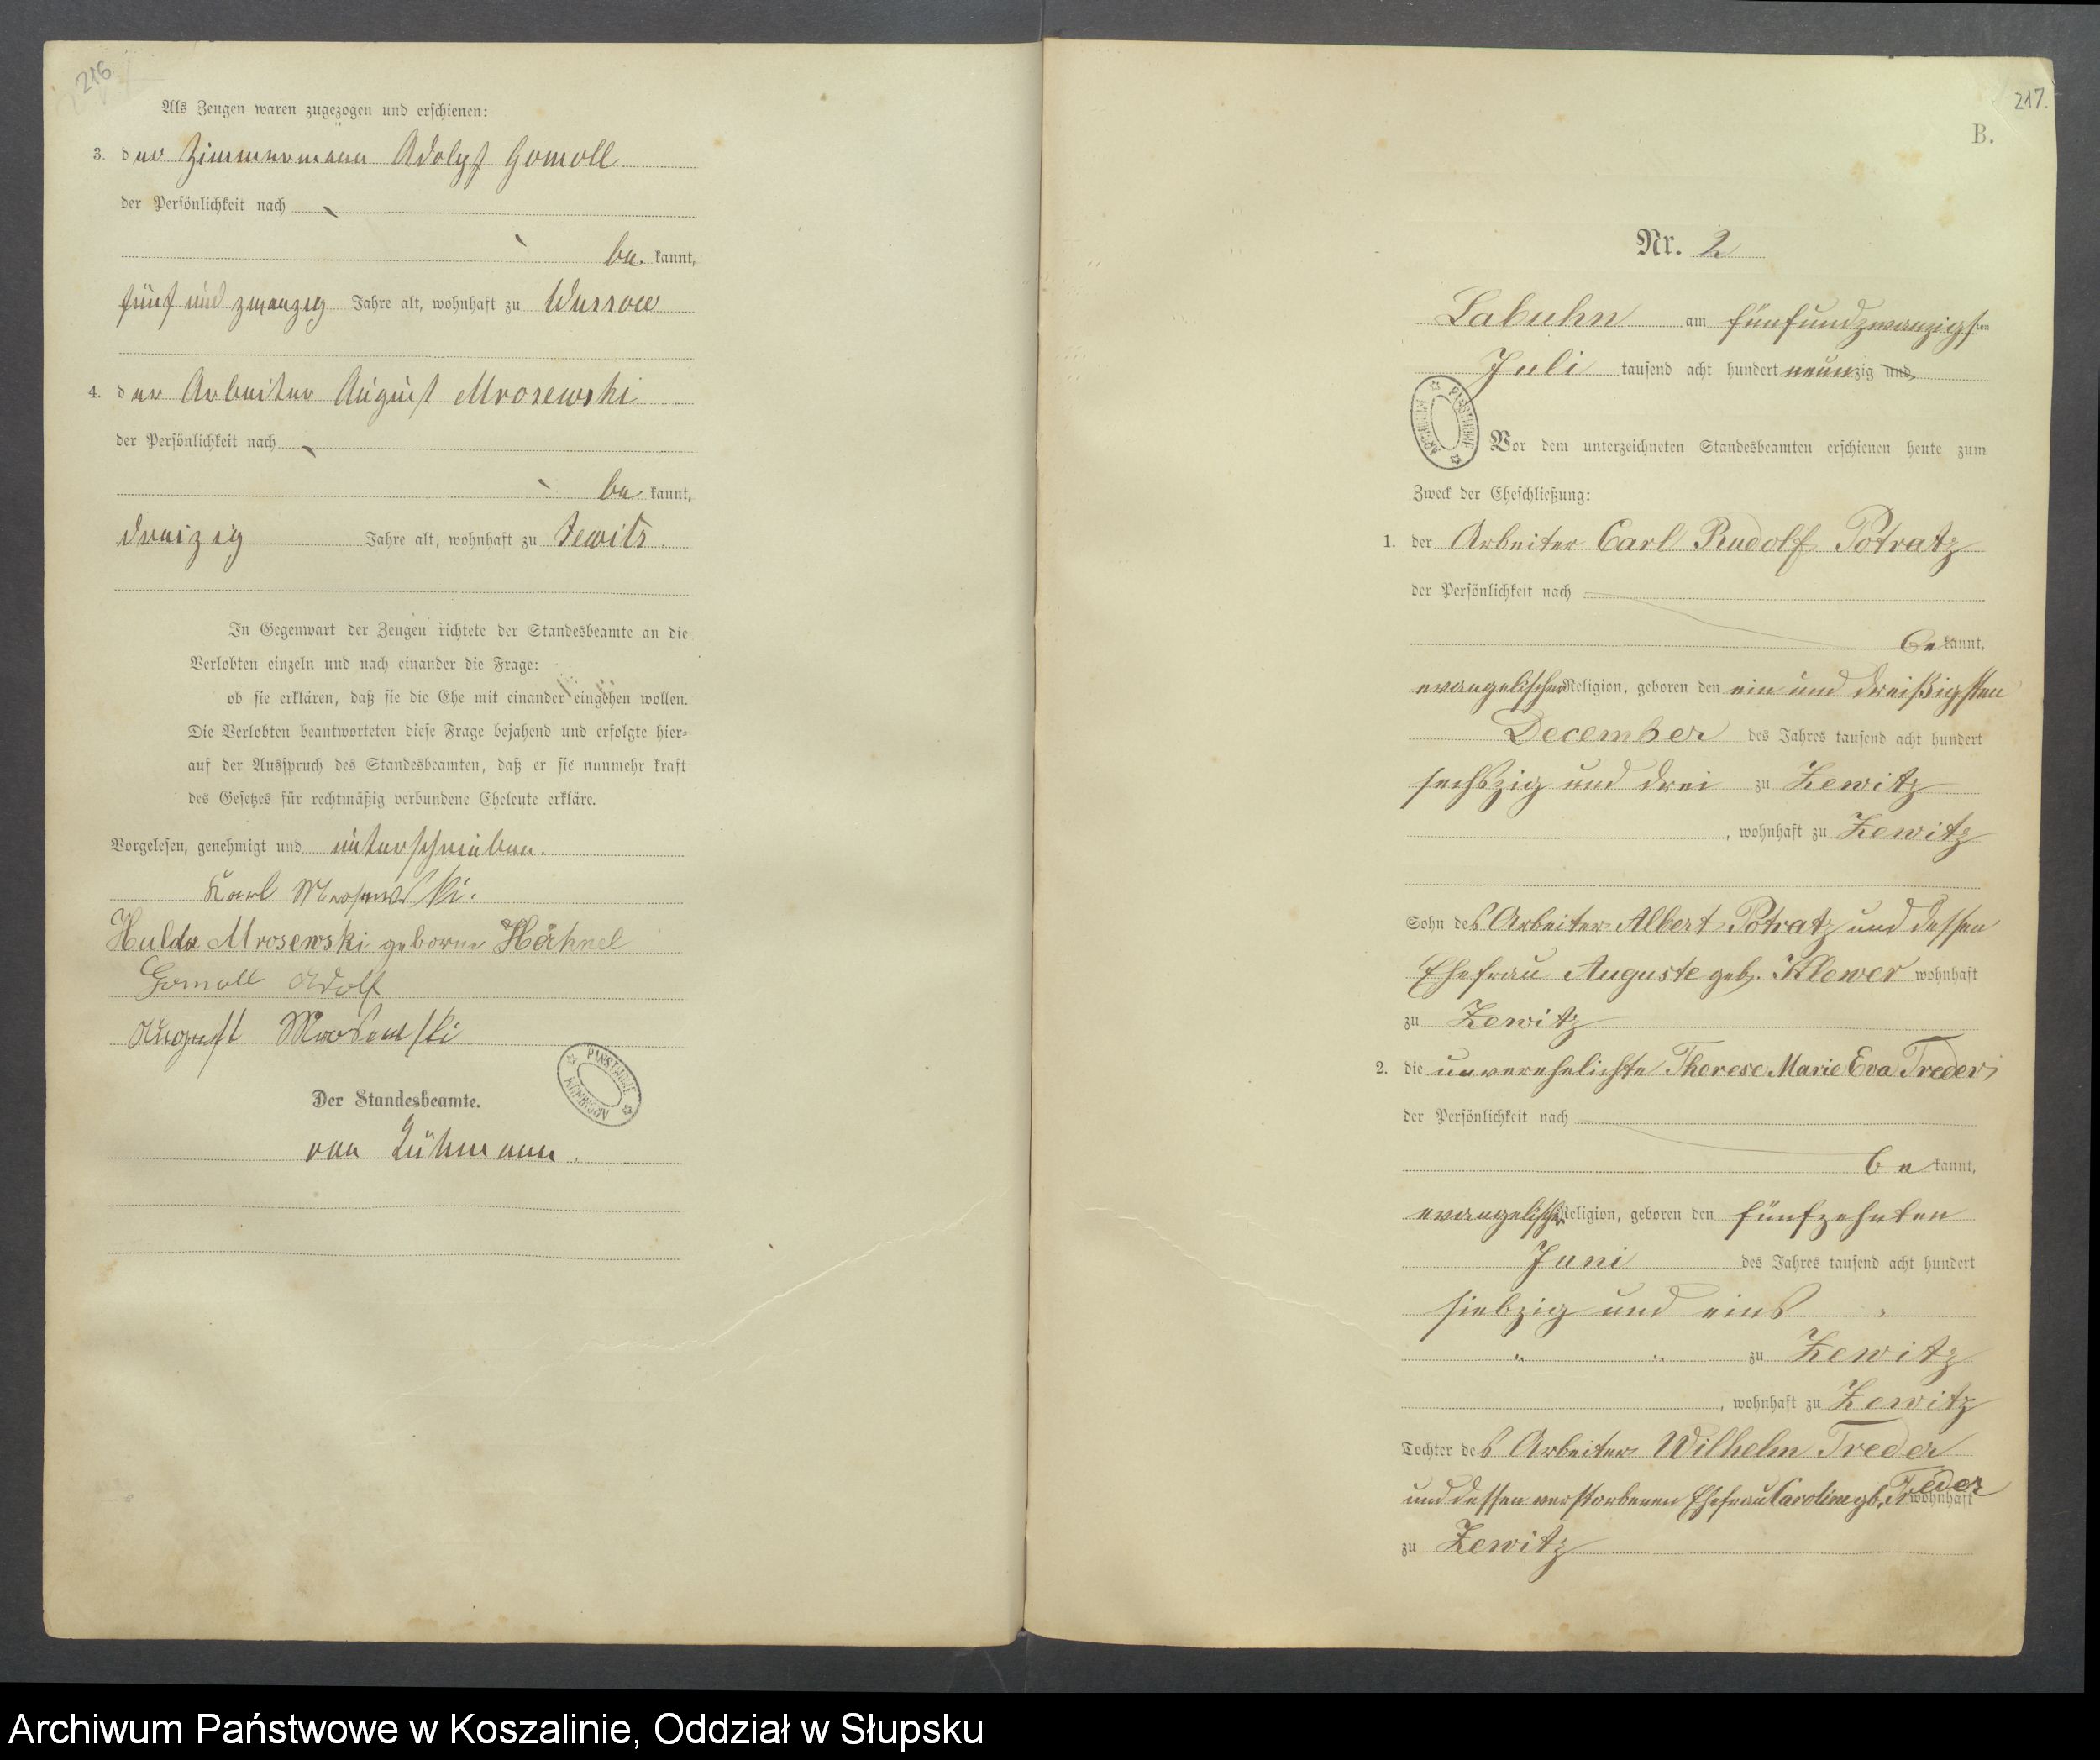 216
Als Zeugen waren zugezogen und erschienen:
3. der Zimmermann Adolph Gomoll
der Persönlichkeit nach
be kannt,
fünf und zwanzig Jahre alt, wohnhaft zu Wussow
4. der Arbeiter August Mrosewski
der Persönlichkeit nach
be kannt,
dreizig Jahre alt, wohnhaft zu Zewitz.
In Gegenwart der Zeugen richtete der Standesbeamte an die
Verlobten einzeln und nach einander die Frage:
ob sie erklären, daß sie die Ehe mit einander eingehen wollen.
Die Verlobten beantworteten diese Frage bejahend und erfolgte hier-
auf der Ausspruch des Standesbeamten, daß er sie nunmehr kraft
des Gesetzes für rechtmäßig verbundene Eheleute erkläre.
Vorgelesen, genehmigt und unterschrieben.
Karl Mrosewski.
Hulda Mrosewski geborne Hähnel
Gomoll Adolf
August Mrosewski
PAŃSTWOWE ARCHIWUM
Der Standesbeamte.
von Lühmann.
217.
B.
Nr. 2
Labuhn am fünfundzwanzigsten
Juli tausend acht hundert neunzig und
PAŃSTWOWE ARCHIWUM
Vor dem unterzeichneten Standesbeamten erschienen heute zum
Zweck der Eheschließung:
1. der Arbeiter Carl Rudolf Potratz
der Persönlichkeit nach
be kannt,
evangelischer Religion, geboren den ein und dreißigsten
December des Jahres tausend acht hundert
sechszig und drei zu Zewitz
, wohnhaft zu Zewitz
Sohn des Arbeiter Albert Potratz und dessen
Ehefrau Auguste geb. Klewer wohnhaft
zu Zewitz
2. die unverehelichte Therese Marie Eva Treder
der Persönlichkeit nach
be kannt,
evangelischer Religion, geboren den fünfzehnten
Juni des Jahres tausend acht hundert
siebzig und eins "
" " zu Zewitz
, wohnhaft zu Zewitz
Tochter des Arbeiters Wilhelm Treder
und dessen verstorbenen Ehefrau Caroline gb. Treder wohnhaft
zu Zewitz
Archiwum Państwowe w Koszalinie, Oddział w Słupsku